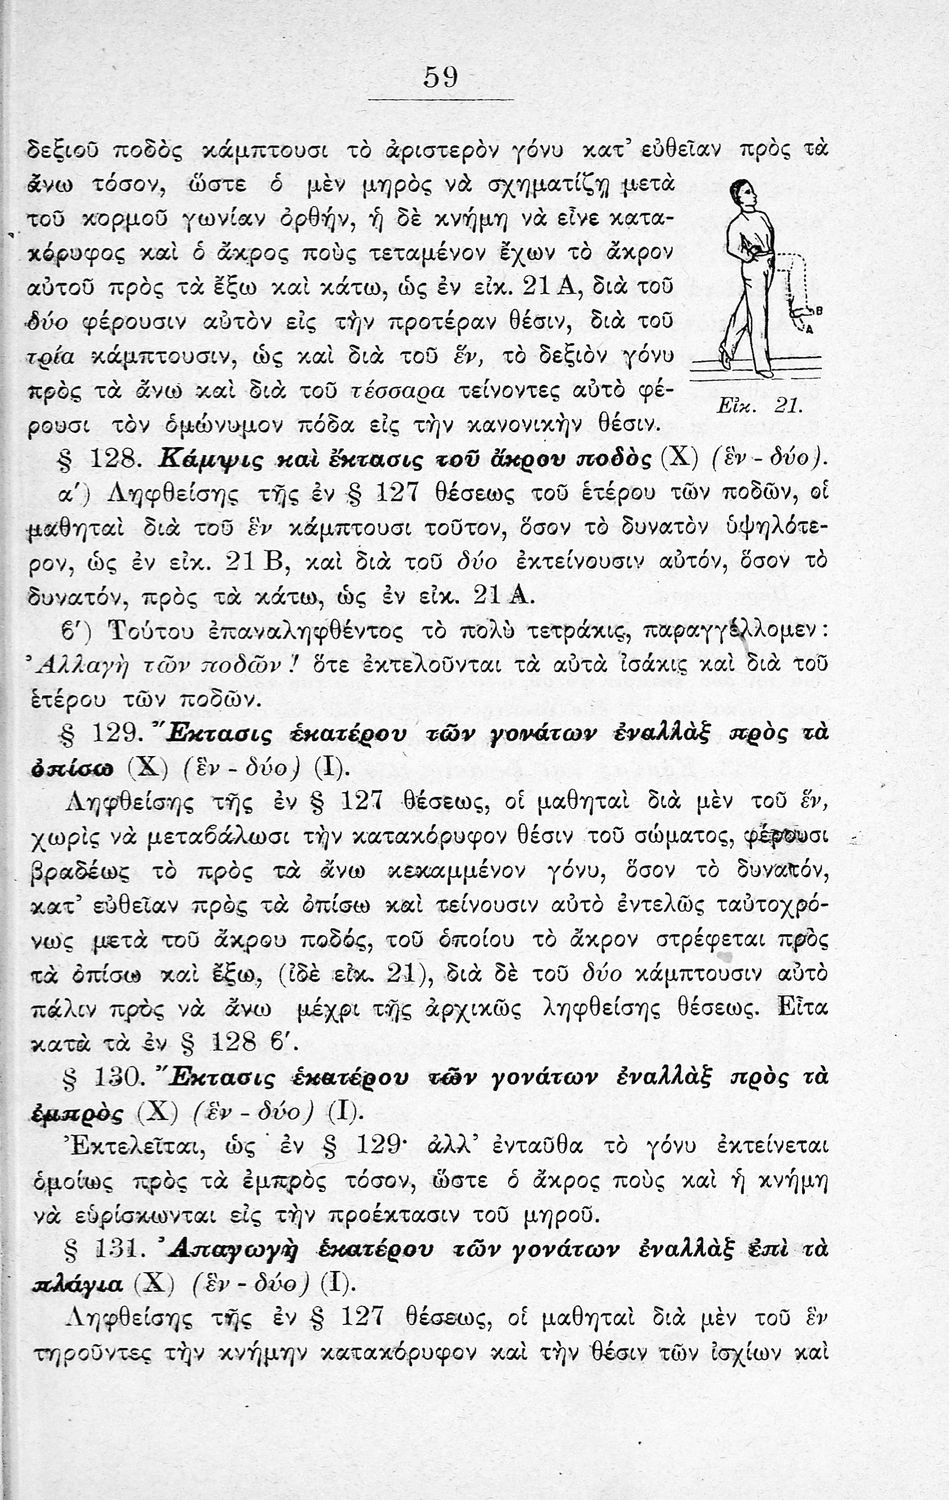 59
δεξιοῦ ποδὸς κάμπτουσι τὸ ἀριστερὸν γόνυ κατ’ εὐθεῖαν πρὸς τὰ
ἄνω τόσον, ὥστε ὁ μὲν μηρὸς νὰ σχηματίζῃ μετὰ
τοῦ κορμοῦ γωνίαν ὀρθήν, ἡ δὲ κνήμη νὰ εἶνε κατα-
κόρυφος καὶ ὁ ἄκρος ποὺς τεταμένον ἔχων τὸ ἄκρον
αὐτοῦ πρὸς τὰ ἔξω καὶ κάτω, ὡς ἐν εἰκ. 21 Α, διὰ τοῦ
δύο φέρουσιν αὐτὸν εἰς τὴν προτέραν θέσιν, διὰ τοῦ
τρία κάμπτουσιν, ὡς καὶ διὰ τοῦ ἕν, τὸ δεξιὸν γόνυ
πρὸς τὰ ἄνω καὶ διὰ τοῦ τέσσαρα τείνοντες αὐτὸ φέ-
ρουσι τὸν ὁμώνυμον πόδα εἰς τὴν κανονικὴν θέσιν.
B
A
Εἰκ. 21.
§ 128. Κάμψις καὶ ἔκτασις τοῦ ἄκρου ποδὸς (Χ) (ἓν - δύο).
α′) Ληφθείσης τῆς ἐν § 127 θέσεως τοῦ ἑτέρου τῶν ποδῶν, οἱ
μαθηταὶ διὰ τοῦ ἓν κάμπτουσι τοῦτον, ὅσον τὸ δυνατὸν ὑψηλότε-
ρον, ὡς ἐν εἰκ. 21 Β, καὶ διὰ τοῦ δύο ἐκτείνουσιν αὐτόν, ὅσον τὸ
δυνατόν, πρὸς τὰ κάτω, ὡς ἐν εἰκ. 21 Α.
ϐ′) Τούτου ἐπαναληφθέντος τὸ πολὺ τετράκις, παραγγέλλομεν:
Ἀλλαγὴ τῶν ποδῶν! ὅτε ἐκτελοῦνται τὰ αὐτὰ ἰσάκις καὶ διὰ τοῦ
ἑτέρου τῶν ποδῶν.
§ 129. Ἔκτασις ἑκατέρου τῶν γονάτων ἐναλλὰξ πρὸς τὰ
ὀπίσω (Χ) (ἓν - δύο) (Ι).
Ληφθείσης τῆς ἐν § 127 θέσεως, οἱ μαθηταὶ διὰ μὲν τοῦ ἕν,
χωρὶς νὰ μεταϐάλωσι τὴν κατακόρυφον θέσιν τοῦ σώματος, φέρουσι
βραδέως τὸ πρὸς τὰ ἄνω κεκαμμένον γόνυ, ὅσον τὸ δυνατόν,
κατ’ εὐθεῖαν πρὸς τὰ ὀπίσω καὶ τείνουσιν αὐτὸ ἐντελῶς ταὐτοχρό-
νως μετὰ τοῦ ἄκρου ποδός, τοῦ ὁποίου τὸ ἄκρον στρέφεται πρὸς
τὰ ὀπίσω καὶ ἔξω, (ἰδὲ εἰκ. 21), διὰ δὲ τοῦ δύο κάμπτουσιν αὐτὸ
πάλιν πρὸς νὰ ἄνω μέχρι τῆς ἀρχικῶς ληφθείσης θέσεως. Εἶτα
κατὰ τὰ ἐν § 128 ϐ′.
§ 130. Ἔκτασις ἑκατέρου τῶν γονάτων ἐναλλὰξ πρὸς τὰ
ἐμπρὸς (Χ) (ἓν - δύο) (Ι).
Ἐκτελεῖται, ὡς ἐν § 129· ἀλλ’ ἐνταῦθα τὸ γόνυ ἐκτείνεται
ὁμοίως πρὸς τὰ ἐμπρὸς τόσον, ὥστε ὁ ἄκρος ποὺς καὶ ἡ κνήμη
νὰ εὑρίσκωνται εἰς τὴν προέκτασιν τοῦ μηροῦ.
§ 131. Ἀπαγωγὴ ἑκατέρου τῶν γονάτων ἐναλλὰξ ἐπὶ τὰ
πλάγια (Χ) (ἓν - δύο) (Ι).
Ληφθείσης τῆς ἐν § 127 θέσεως, οἱ μαθηταὶ διὰ μὲν τοῦ ἓν
τηροῦντες τὴν κνήμην κατακόρυφον καὶ τὴν θέσιν τῶν ἰσχίων καὶ